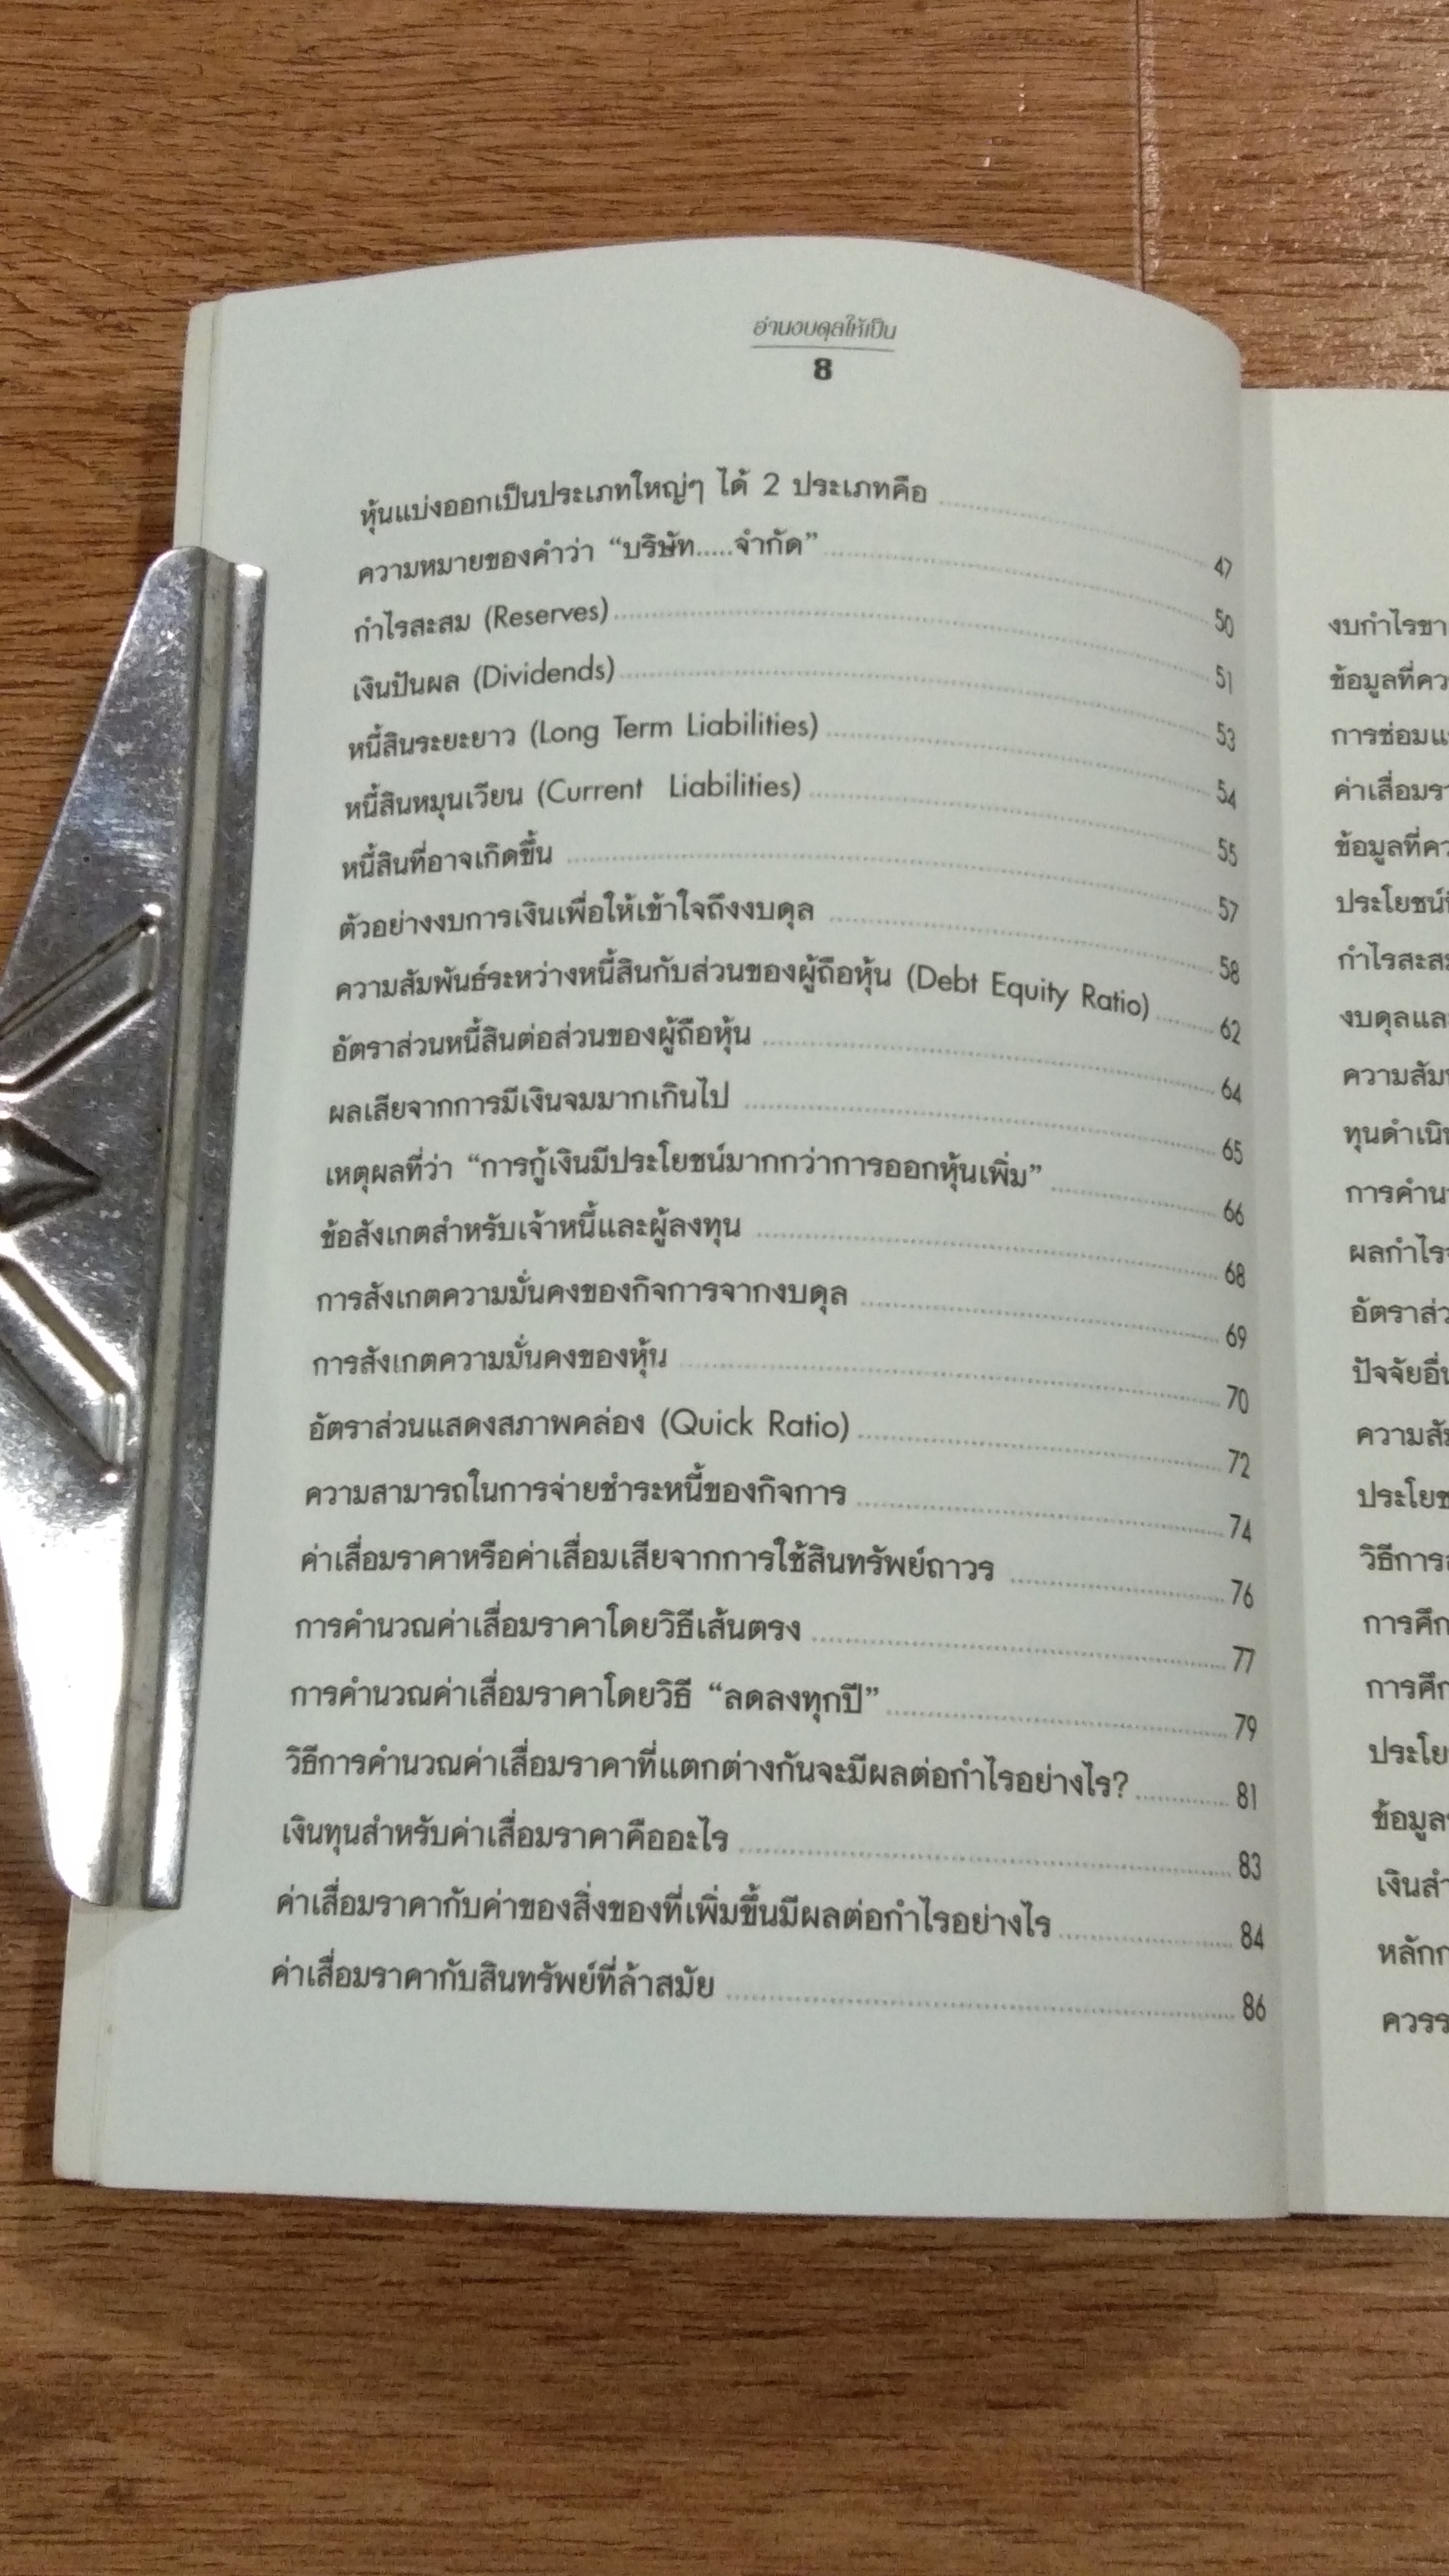 อ่านงบดุลให้เป็น
8
หุ้นแบ่งออกเป็นประเภทใหญ่ๆ ได้ 2 ประเภทคือ 47
ความหมายของคำว่า “บริษัท.....จำกัด” 50
กำไรสะสม (Reserves) 51
เงินปันผล (Dividends) 53
หนี้สินระยะยาว (Long Term Liabilities) 54
หนี้สินหมุนเวียน (Current Liabilities) 55
หนี้สินที่อาจเกิดขึ้น 57
ตัวอย่างงบการเงินเพื่อให้เข้าใจถึงงบดุล 58
ความสัมพันธ์ระหว่างหนี้สินกับส่วนของผู้ถือหุ้น (Debt Equity Ratio) 62
อัตราส่วนหนี้สินต่อส่วนของผู้ถือหุ้น 64
ผลเสียจากการมีเงินจมมากเกินไป 65
เหตุผลที่ว่า “การกู้เงินมีประโยชน์มากกว่าการออกหุ้นเพิ่ม” 66
ข้อสังเกตสำหรับเจ้าหนี้และผู้ลงทุน 68
การสังเกตความมั่นคงของกิจการจากงบดุล 69
การสังเกตความมั่นคงของหุ้น 70
อัตราส่วนแสดงสภาพคล่อง (Quick Ratio) 72
ความสามารถในการจ่ายชำระหนี้ของกิจการ 74
ค่าเสื่อมราคาหรือค่าเสื่อมเสียจากการใช้สินทรัพย์ถาวร 76
การคำนวณค่าเสื่อมราคาโดยวิธีเส้นตรง 77
การคำนวณค่าเสื่อมราคาโดยวิธี “ลดลงทุกปี” 79
วิธีการคำนวณค่าเสื่อมราคาที่แตกต่างกันจะมีผลต่อกำไรอย่างไร? 81
เงินทุนสำหรับค่าเสื่อมราคาคืออะไร 83
ค่าเสื่อมราคากับค่าของสิ่งของที่เพิ่มขึ้นมีผลต่อกำไรอย่างไร 84
ค่าเสื่อมราคากับสินทรัพย์ที่ล้าสมัย 86